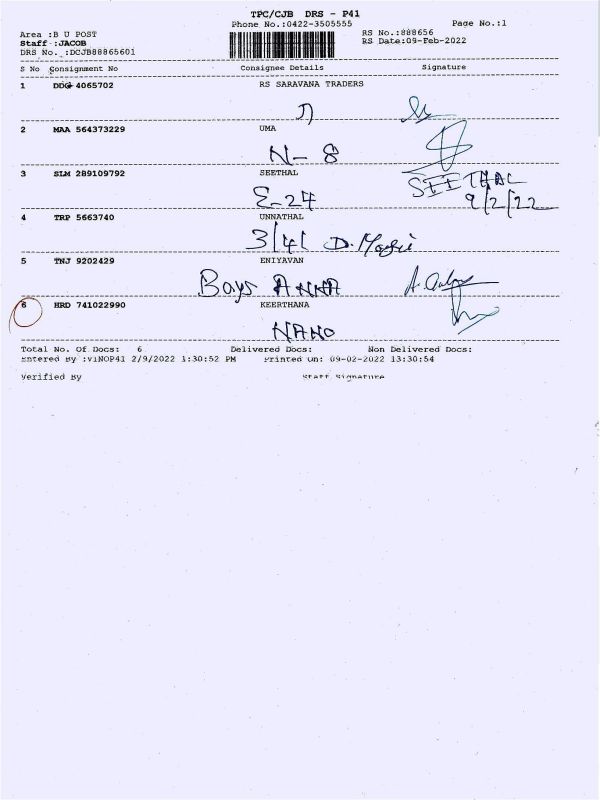 TPC/CJB DRS - P41
Phone No.:0422-3505555
Page No.:1
Area :B U POST
RS No.:888656
Staff :JACOB
RS Date:09-Feb-2022
DRS No. :DCJB88865601
S No Consignment No Consignee Details Signature
1 DDG 4065702 RS SARAVANA TRADERS
2 MAA 564373229 UMA
N- 8
3 SLM 289109792 SEETHAL
SEETHAL
E-24 9/2/22
4 TRP 5663740 UNNATHAL
3/41
5 TNJ 9202429 ENIYAVAN
Boys ANNA
6 HRD 741022990 KEERTHANA
NANO
Total No. Of Docs: 6 Delivered Docs: Non Delivered Docs:
Entered By :V1NOP41 2/9/2022 1:30:52 PM Printed On: 09-02-2022 13:30:54
Verified By Staff Signature